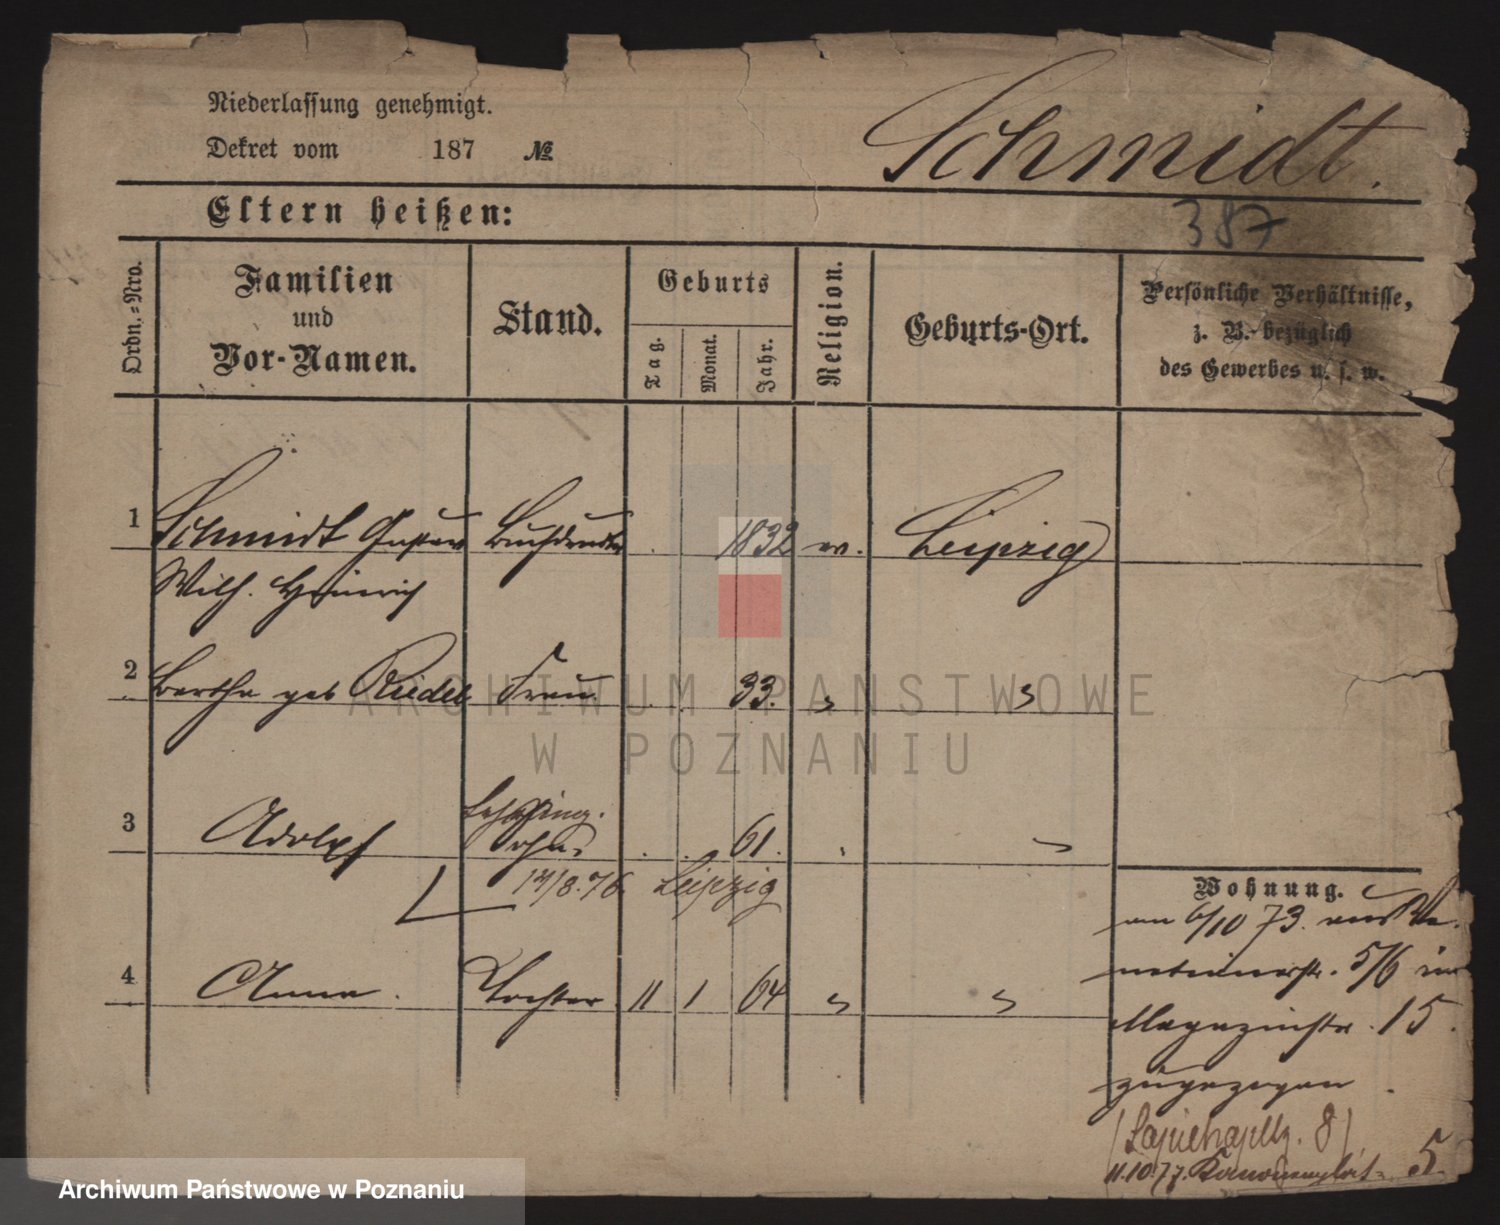 Niederlassung genehmigt.
Dekret vom 187 №
Schmidt.
Eltern heißen:
387
Ordn.-Nro.
Familien
und
Vor-Namen.
Stand.
Geburts
Tag.
Monat.
Jahr.
Religion.
Geburts-Ort.
Persönliche Verhältnisse,
z. B. bezüglich
des Gewerbes u. s. w.
1 Schmidt Gustav Buchdrucker 1832 ev. Leipzig
Wilh. Heinrich
2 Bertha geb Riedel Frau 33. " "
ARCHIWUM PAŃSTWOWE
W POZNANIU
3 Adolph Sohn 61. " "
17/8.76. Leipzig
4 Anna. Tochter 11 1 64 " "
Wohnung.
am 6/10 73. aus
5/6 in
Magazinstr. 15.
zugezogen.
(Sapiehapltz. 8)
11.10.77. 5.
Archiwum Państwowe w Poznaniu